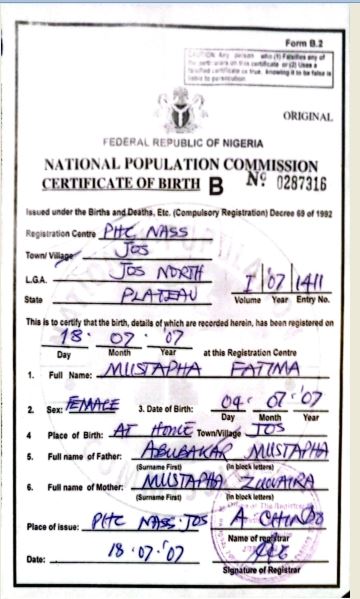 Form B.2
CAUTION: Any person who (1) Falsifies any of
the particulars on this certificate or (2) Uses a
falsified certificate as true, knowing it to be false is
liable to persecution
ORIGINAL
FEDERAL REPUBLIC OF NIGERIA
NATIONAL POPULATION COMMISSION
CERTIFICATE OF BIRTH B No 0287316
Issued under the Births and Deaths, Etc. (Compulsory Registration) Decree 69 of 1992
Registration Centre PHC NASS
Town/Village JOS
L.G.A. JOS NORTH
State PLATEAU
I '07 1411
Volume Year Entry No.
This is to certify that the birth, details of which are recorded herein, has been registered on
18 · 07 · '07
Day Month Year at this Registration Centre
1. Full Name: MUSTAPHA FATIMA
2. Sex: FEMALE 3. Date of Birth: 04 · 07 · '07
Day Month Year
4 Place of Birth: AT HOME Town/Village JOS
5. Full name of Father: ABUBAKAR MUSTAPHA
(Surname First) (in block letters)
6. Full name of Mother: MUSTAPHA ZUWAIRA
(Surname First) (in block letters)
Place of issue: PHC NASS · JOS
Name of registrar
Date: 18 · 07 · '07
Signature of Registrar